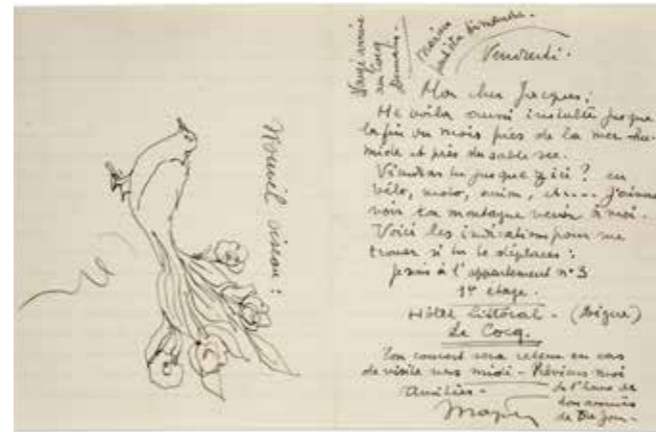 Nouvel oiseau :
arrive
au Cocq
Vendredi.
Mon cher Jacques ;
Me voila aussi installé jusque
la fin du mois près de la mer hu-
mide et près du sable sec.
Viendras tu jusque ici ? en
vélo, moto, avion, J'aimerais
voir ta montagne venir à moi.
Voici les indications pour me
trouver si tu te déplaces :
Je suis à l'appartement n° 3
1er étage.
Hôtel Littoral - (Digue)
Le Cocq.
Ton couvert sera retenu en cas
de visite vers midi - Préviens moi
Amitiés - de l'heure de
ton arrivée